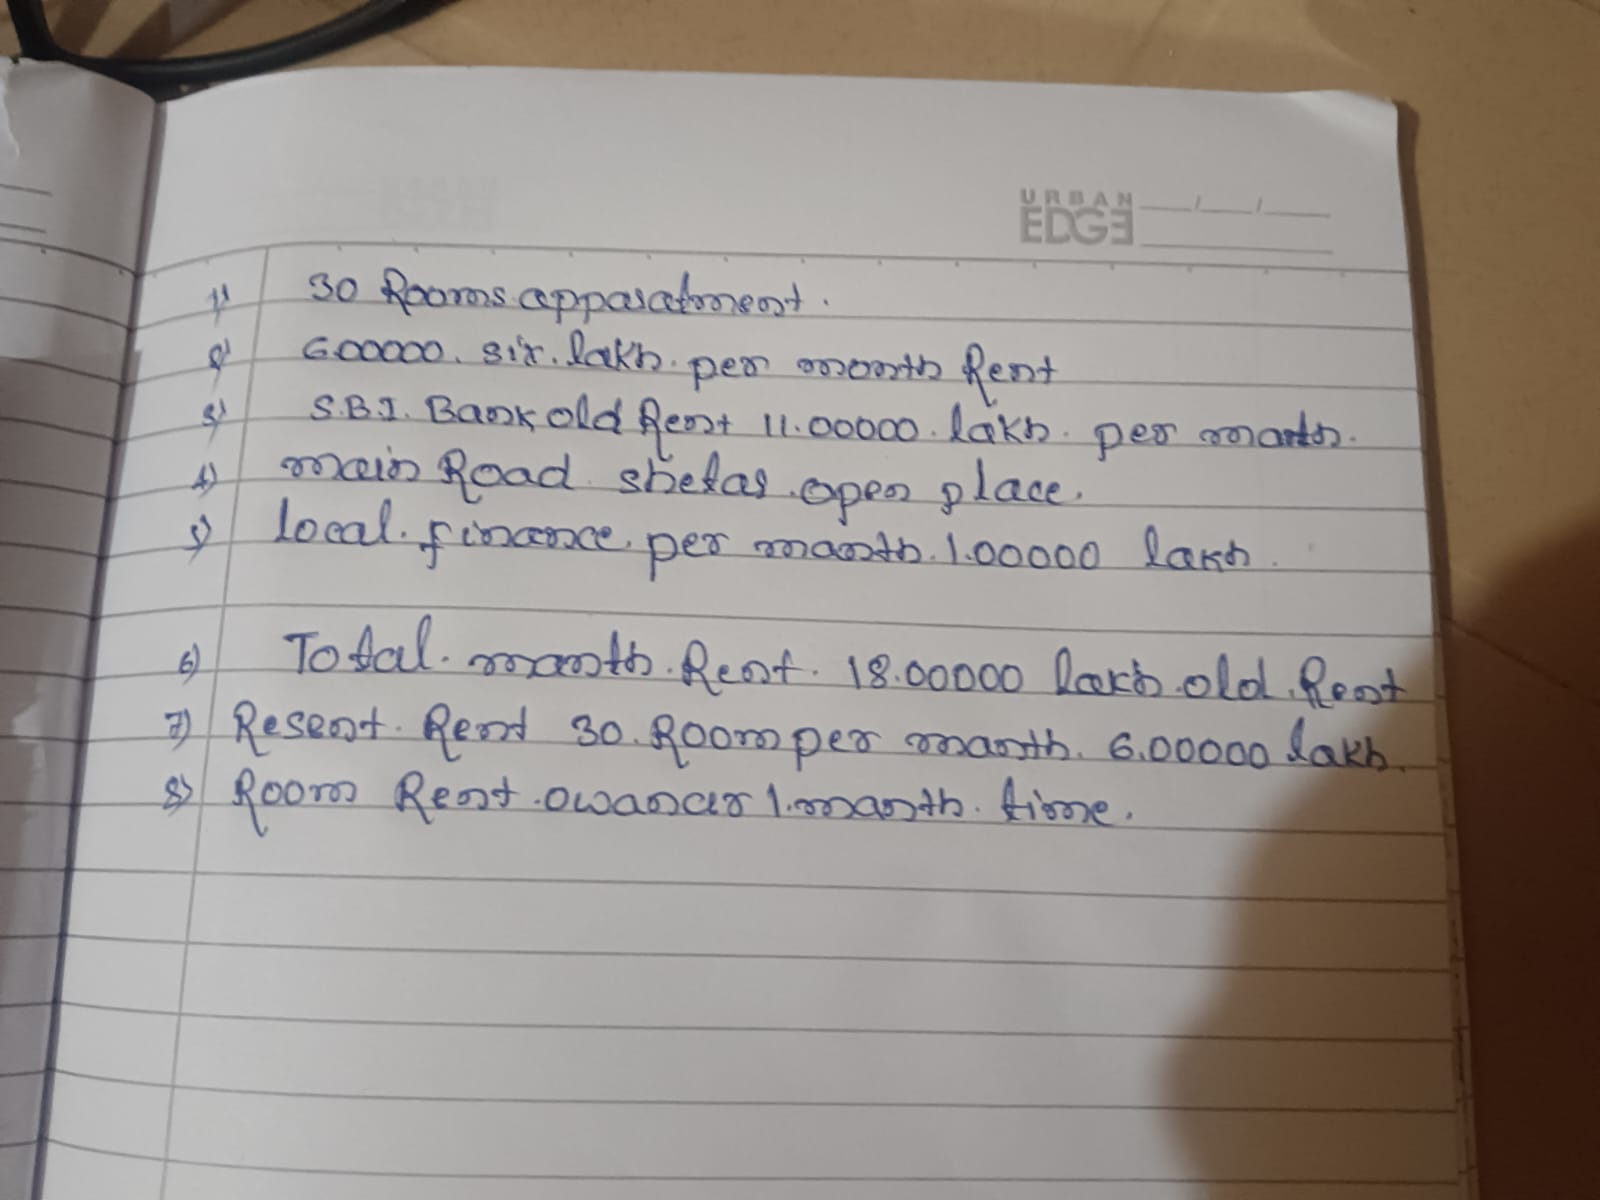 URBAN
EDGE
1) 30 Rooms appasatment.
2) 600000. six. lakh. per month Rent
3) S.B.I. Bank old Rent 11.00000. lakh. per manth.
4) main Road. shetas. open place.
5) local. finance. per manth. 1.00000 lakh.
6) Total. manth. Rent. 18.00000 lakh. old. Rent
7) Resent. Rent 30. Room per manth. 6.00000 lakh.
8) Room Rent. owancer 1. manth. time.